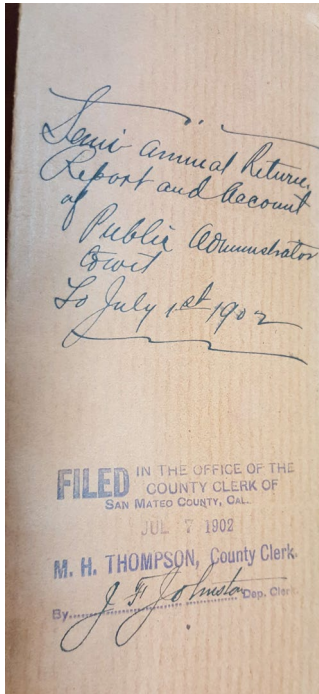 Semi annual Return,
Report and Account
of
Public Administrator
Co
To July 1st 1902
FILED IN THE OFFICE OF THE
COUNTY CLERK OF
SAN MATEO COUNTY, CAL.
JUL 7 1902
M. H. THOMPSON, County Clerk.
By J. F. Johnston Dep. Cler